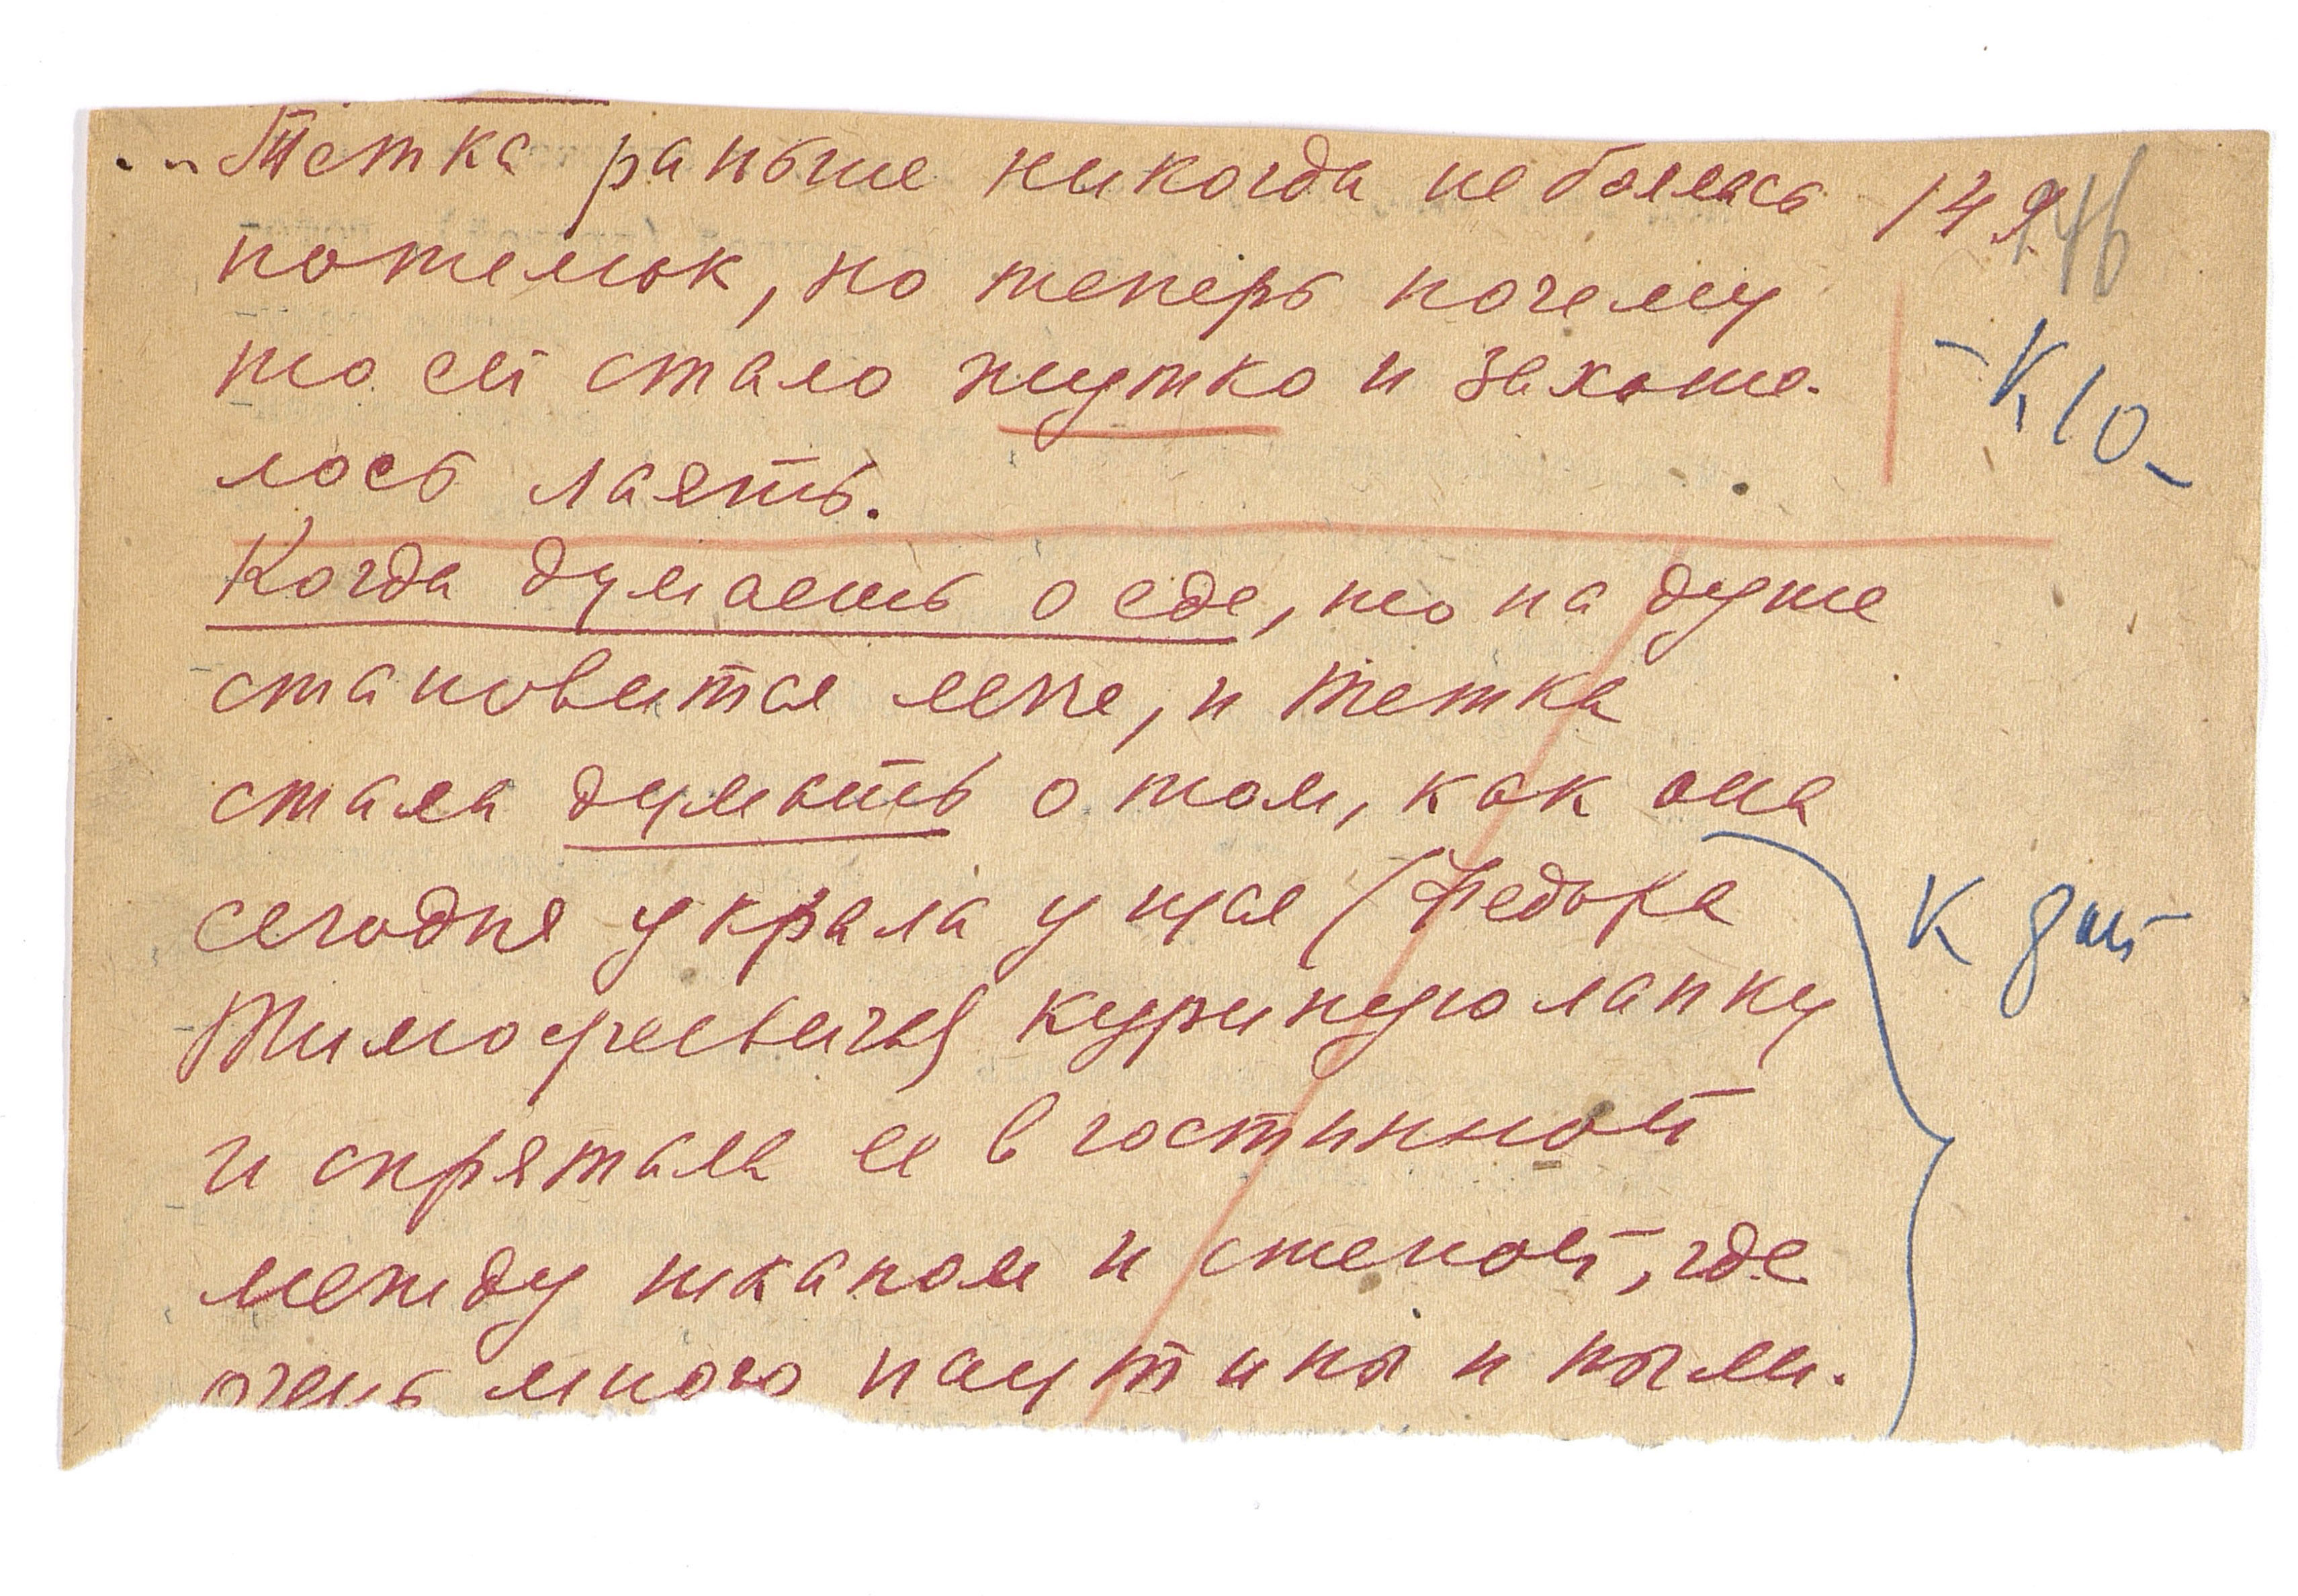 ...Тетка раньше никогда не боялась 149
146
потемок, но теперь почему
то ей стало жутко и захоте-
-К10-
лось лаять.
Когда думаешь о еде, то на душе
становится легче, и Тетка
стала думать о том, как она
сегодня украла у нея (Федора
К
Тимофеевича) куриную лапку
и спрятала ее в гостинной
между шкапом и стеной, где
очень много паутины и пыли.